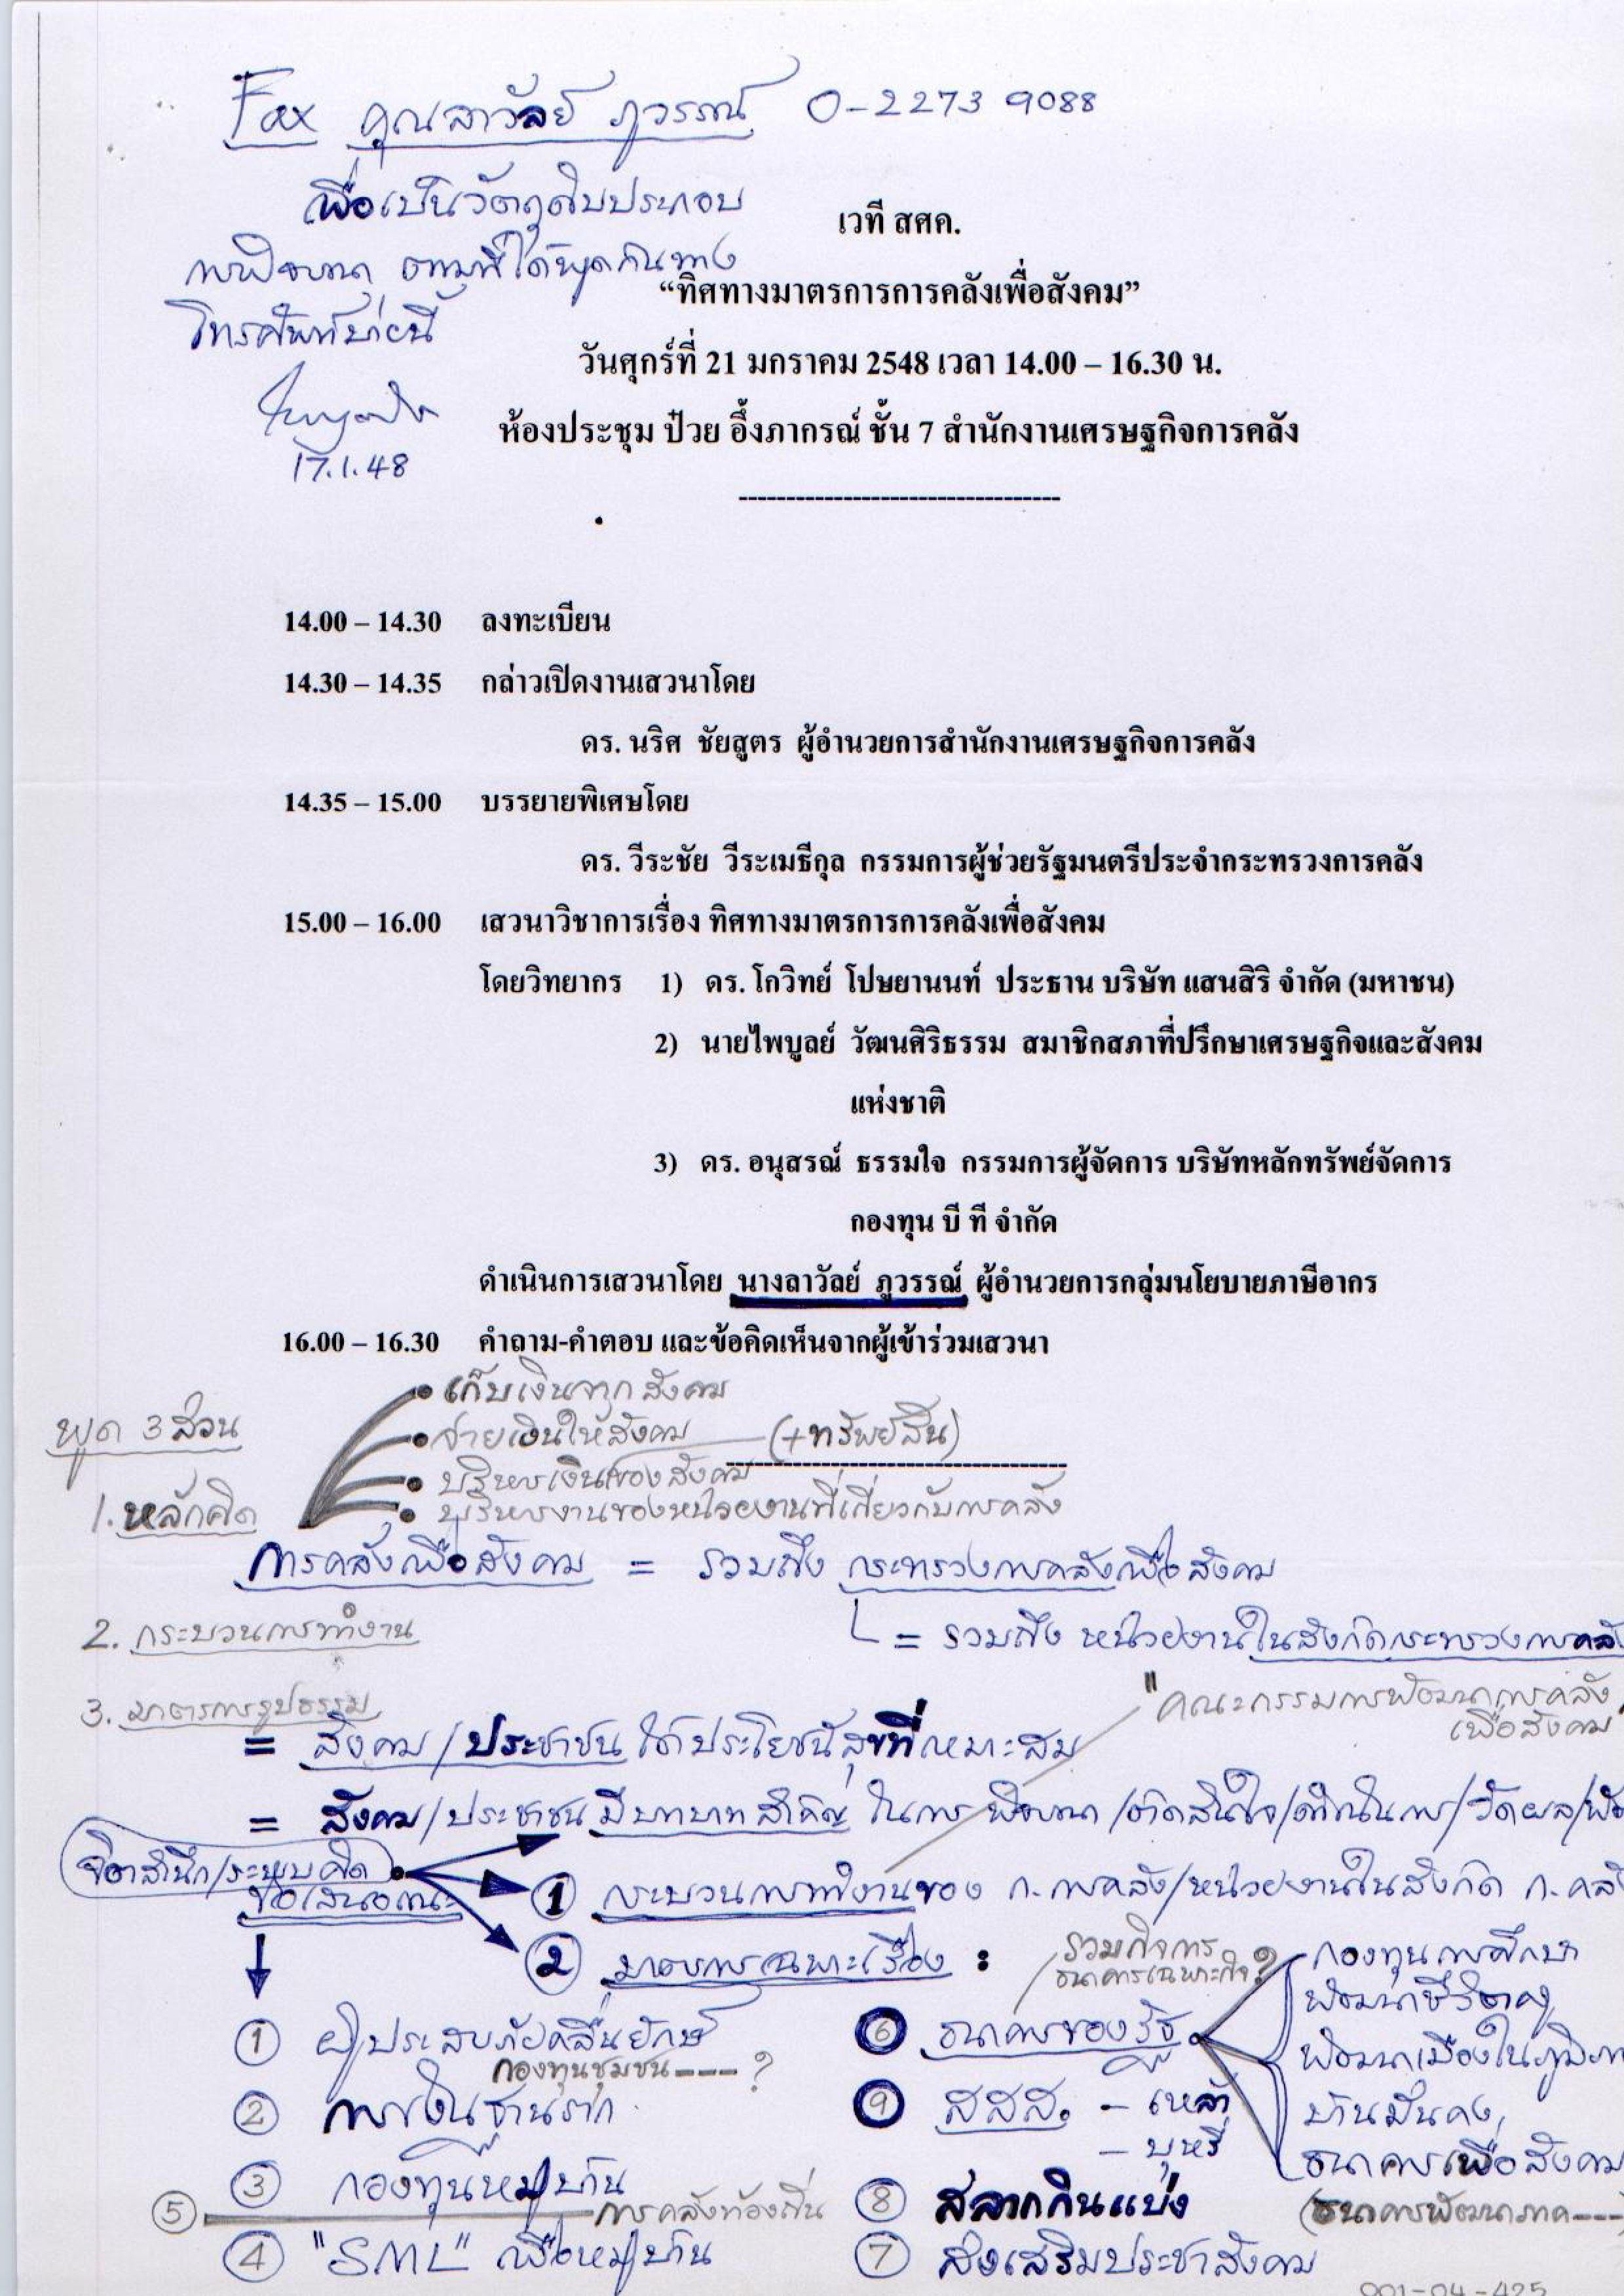 Fax คุณลาวัลย์ ภูวรรณ์ 0-2273 9088
เพื่อเป็นวัตถุดิบประกอบ
การพิจารณา ตามที่ได้พูดกันทาง
โทรศัพท์บ่ายนี้
17.1.48
เวที สศค.
“ทิศทางมาตรการการคลังเพื่อสังคม”
วันศุกร์ที่ 21 มกราคม 2548 เวลา 14.00 – 16.30 น.
ห้องประชุม ป๋วย อึ๊งภากรณ์ ชั้น 7 สำนักงานเศรษฐกิจการคลัง
----------------------------------
14.00 – 14.30 ลงทะเบียน
14.30 – 14.35 กล่าวเปิดงานเสวนาโดย
ดร. นริศ ชัยสูตร ผู้อำนวยการสำนักงานเศรษฐกิจการคลัง
14.35 – 15.00 บรรยายพิเศษโดย
ดร. วีระชัย วีระเมธีกุล กรรมการผู้ช่วยรัฐมนตรีประจำกระทรวงการคลัง
15.00 – 16.00 เสวนาวิชาการเรื่อง ทิศทางมาตรการการคลังเพื่อสังคม
โดยวิทยากร 1) ดร. โกวิทย์ โปษยานนท์ ประธาน บริษัท แสนสิริ จำกัด (มหาชน)
2) นายไพบูลย์ วัฒนศิริธรรม สมาชิกสภาที่ปรึกษาเศรษฐกิจและสังคม
แห่งชาติ
3) ดร. อนุสรณ์ ธรรมใจ กรรมการผู้จัดการ บริษัทหลักทรัพย์จัดการ
กองทุน บี ที จำกัด
ดำเนินการเสวนาโดย นางลาวัลย์ ภูวรรณ์ ผู้อำนวยการกลุ่มนโยบายภาษีอากร
16.00 – 16.30 คำถาม-คำตอบ และข้อคิดเห็นจากผู้เข้าร่วมเสวนา
พูด 3 ส่วน
• เก็บเงินจากสังคม
• จ่ายเงินให้สังคม (+ทรัพย์สิน)
• บริหารเงินของสังคม
• บริหารงานของหน่วยงานที่เกี่ยวกับการคลัง
1. หลักคิด
การคลังเพื่อสังคม = รวมถึง กระทรวงการคลังเพื่อสังคม
2. กระบวนการทำงาน
= รวมถึง หน่วยงานในสังกัดกระทรวงการคลัง
"คณะกรรมการพัฒนาการคลัง
เพื่อสังคม"
3. มาตรการรูปธรรม
= สังคม/ประชาชน ได้ประโยชน์สุขที่เหมาะสม
= สังคม/ประชาชน มีบทบาทสำคัญ ในการ พิจารณา/ตัดสินใจ/ดำเนินการ/วัดผล/
จิตสำนึก/ระบบคิด
ข้อเสนอแนะ
① กระบวนการทำงานของ ก. การคลัง/หน่วยงานในสังกัด ก. คลัง
② มาตรการเฉพาะเรื่อง :
รวมกิจการ
ธนาคารเฉพาะกิจ?
① ผู้ประสบภัยคลื่นยักษ์
กองทุนชุมชน---- ?
② การเงินฐานราก
③ กองทุนหมู่บ้าน
⑤ การคลังท้องถิ่น
④ "SML" เพื่อหมู่บ้าน
⑥ ธนาคารของรัฐ
กองทุนการศึกษา
พัฒนาชีวิตครู
พัฒนาเมืองในภูมิภาค
บ้านมั่นคง,
ธนาคารเพื่อสังคม
(ธนาคารพัฒนาภาค---
⑨ สสส. – เหล้า
– บุหรี่
⑧ สลากกินแบ่ง
⑦ ส่งเสริมประชาสังคม
001-04-425